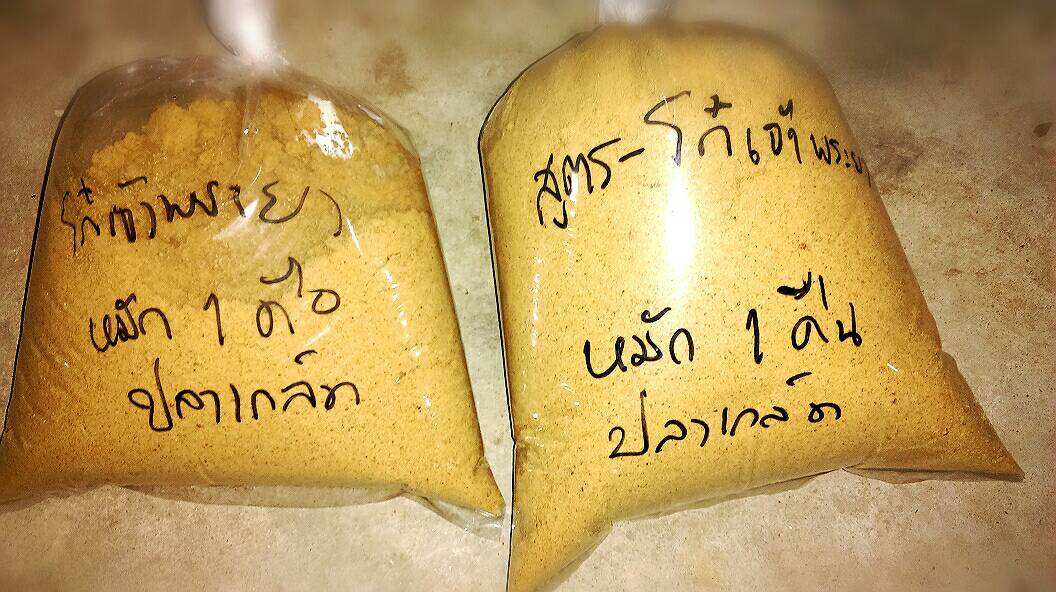 โก๋เจ้าพระยา
หมัก 1 คืน
ปลาเกล็ด
สูตร-โก๋เจ้าพระยา
หมัก 1 คืน
ปลาเกล็ด